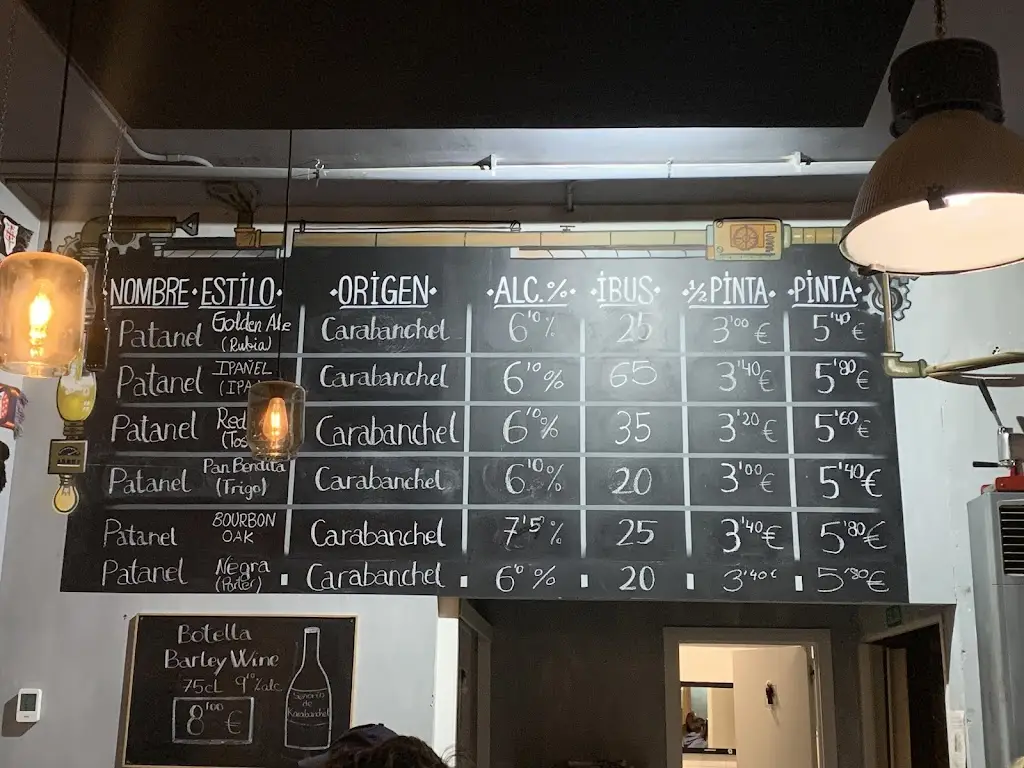 NOMBRE · ESTİLO · ORİGEN · ALC.% · İBUS · ½ PİNTA · PİNTA
Patanel Golden Ale (Rubia) Carabanchel 6'0 % 25 3'00 € 5'40 €
Patanel IPAÑEL (IPA Carabanchel 6'0 % 65 3'40 € 5'80 €
Patanel Red Carabanchel 6'0 % 35 3'20 € 5'60 €
Patanel Pan Bendita (Trigo) Carabanchel 6'0 % 20 3'00 € 5'40 €
Patanel BOURBON OAK Carabanchel 7'5 % 25 3'40 € 5'80 €
Patanel Negra (Porter) Carabanchel 6'0 % 20 3'40 € 5'80 €
Botella
Barley Wine
75cl 9'0 % alc.
8'00 €